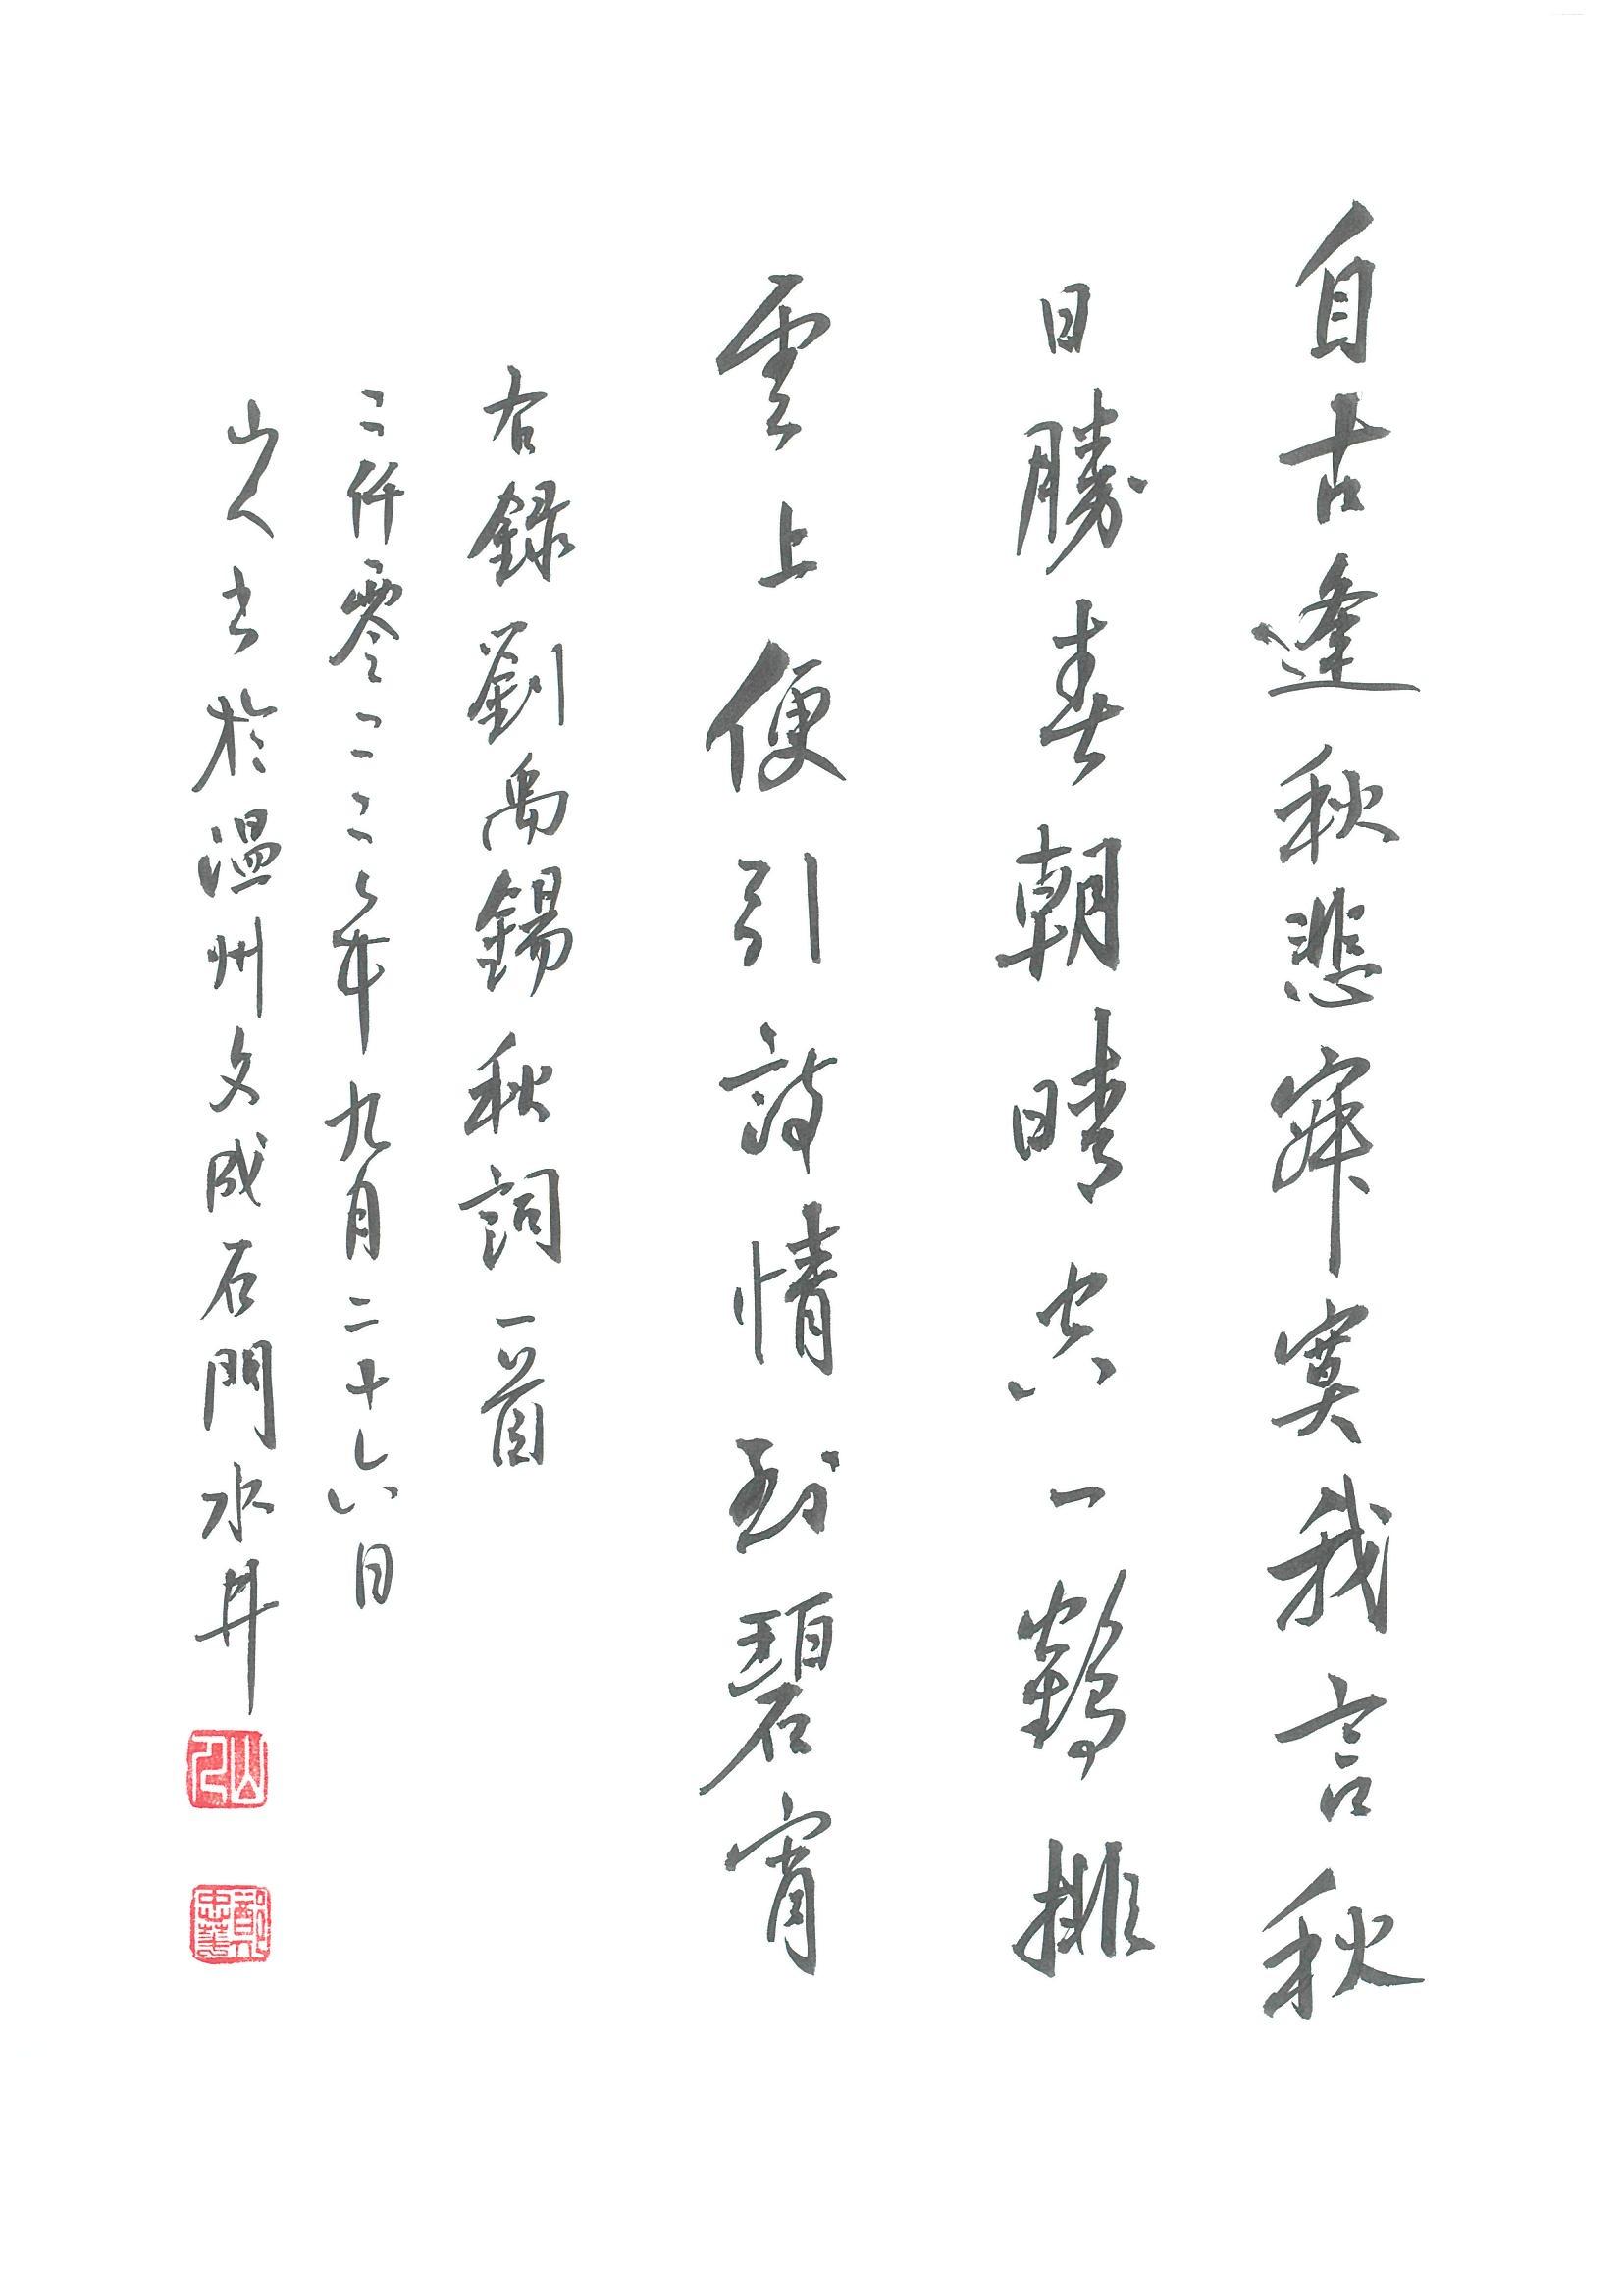 自古逢秋悲寂寞我言秋
日勝春朝晴空一鶴排
雲上便引詩情到碧宵
右錄劉禹錫秋詞一首
二仟零二二年九月二十六日
山人书於温州文成石門水井
山人